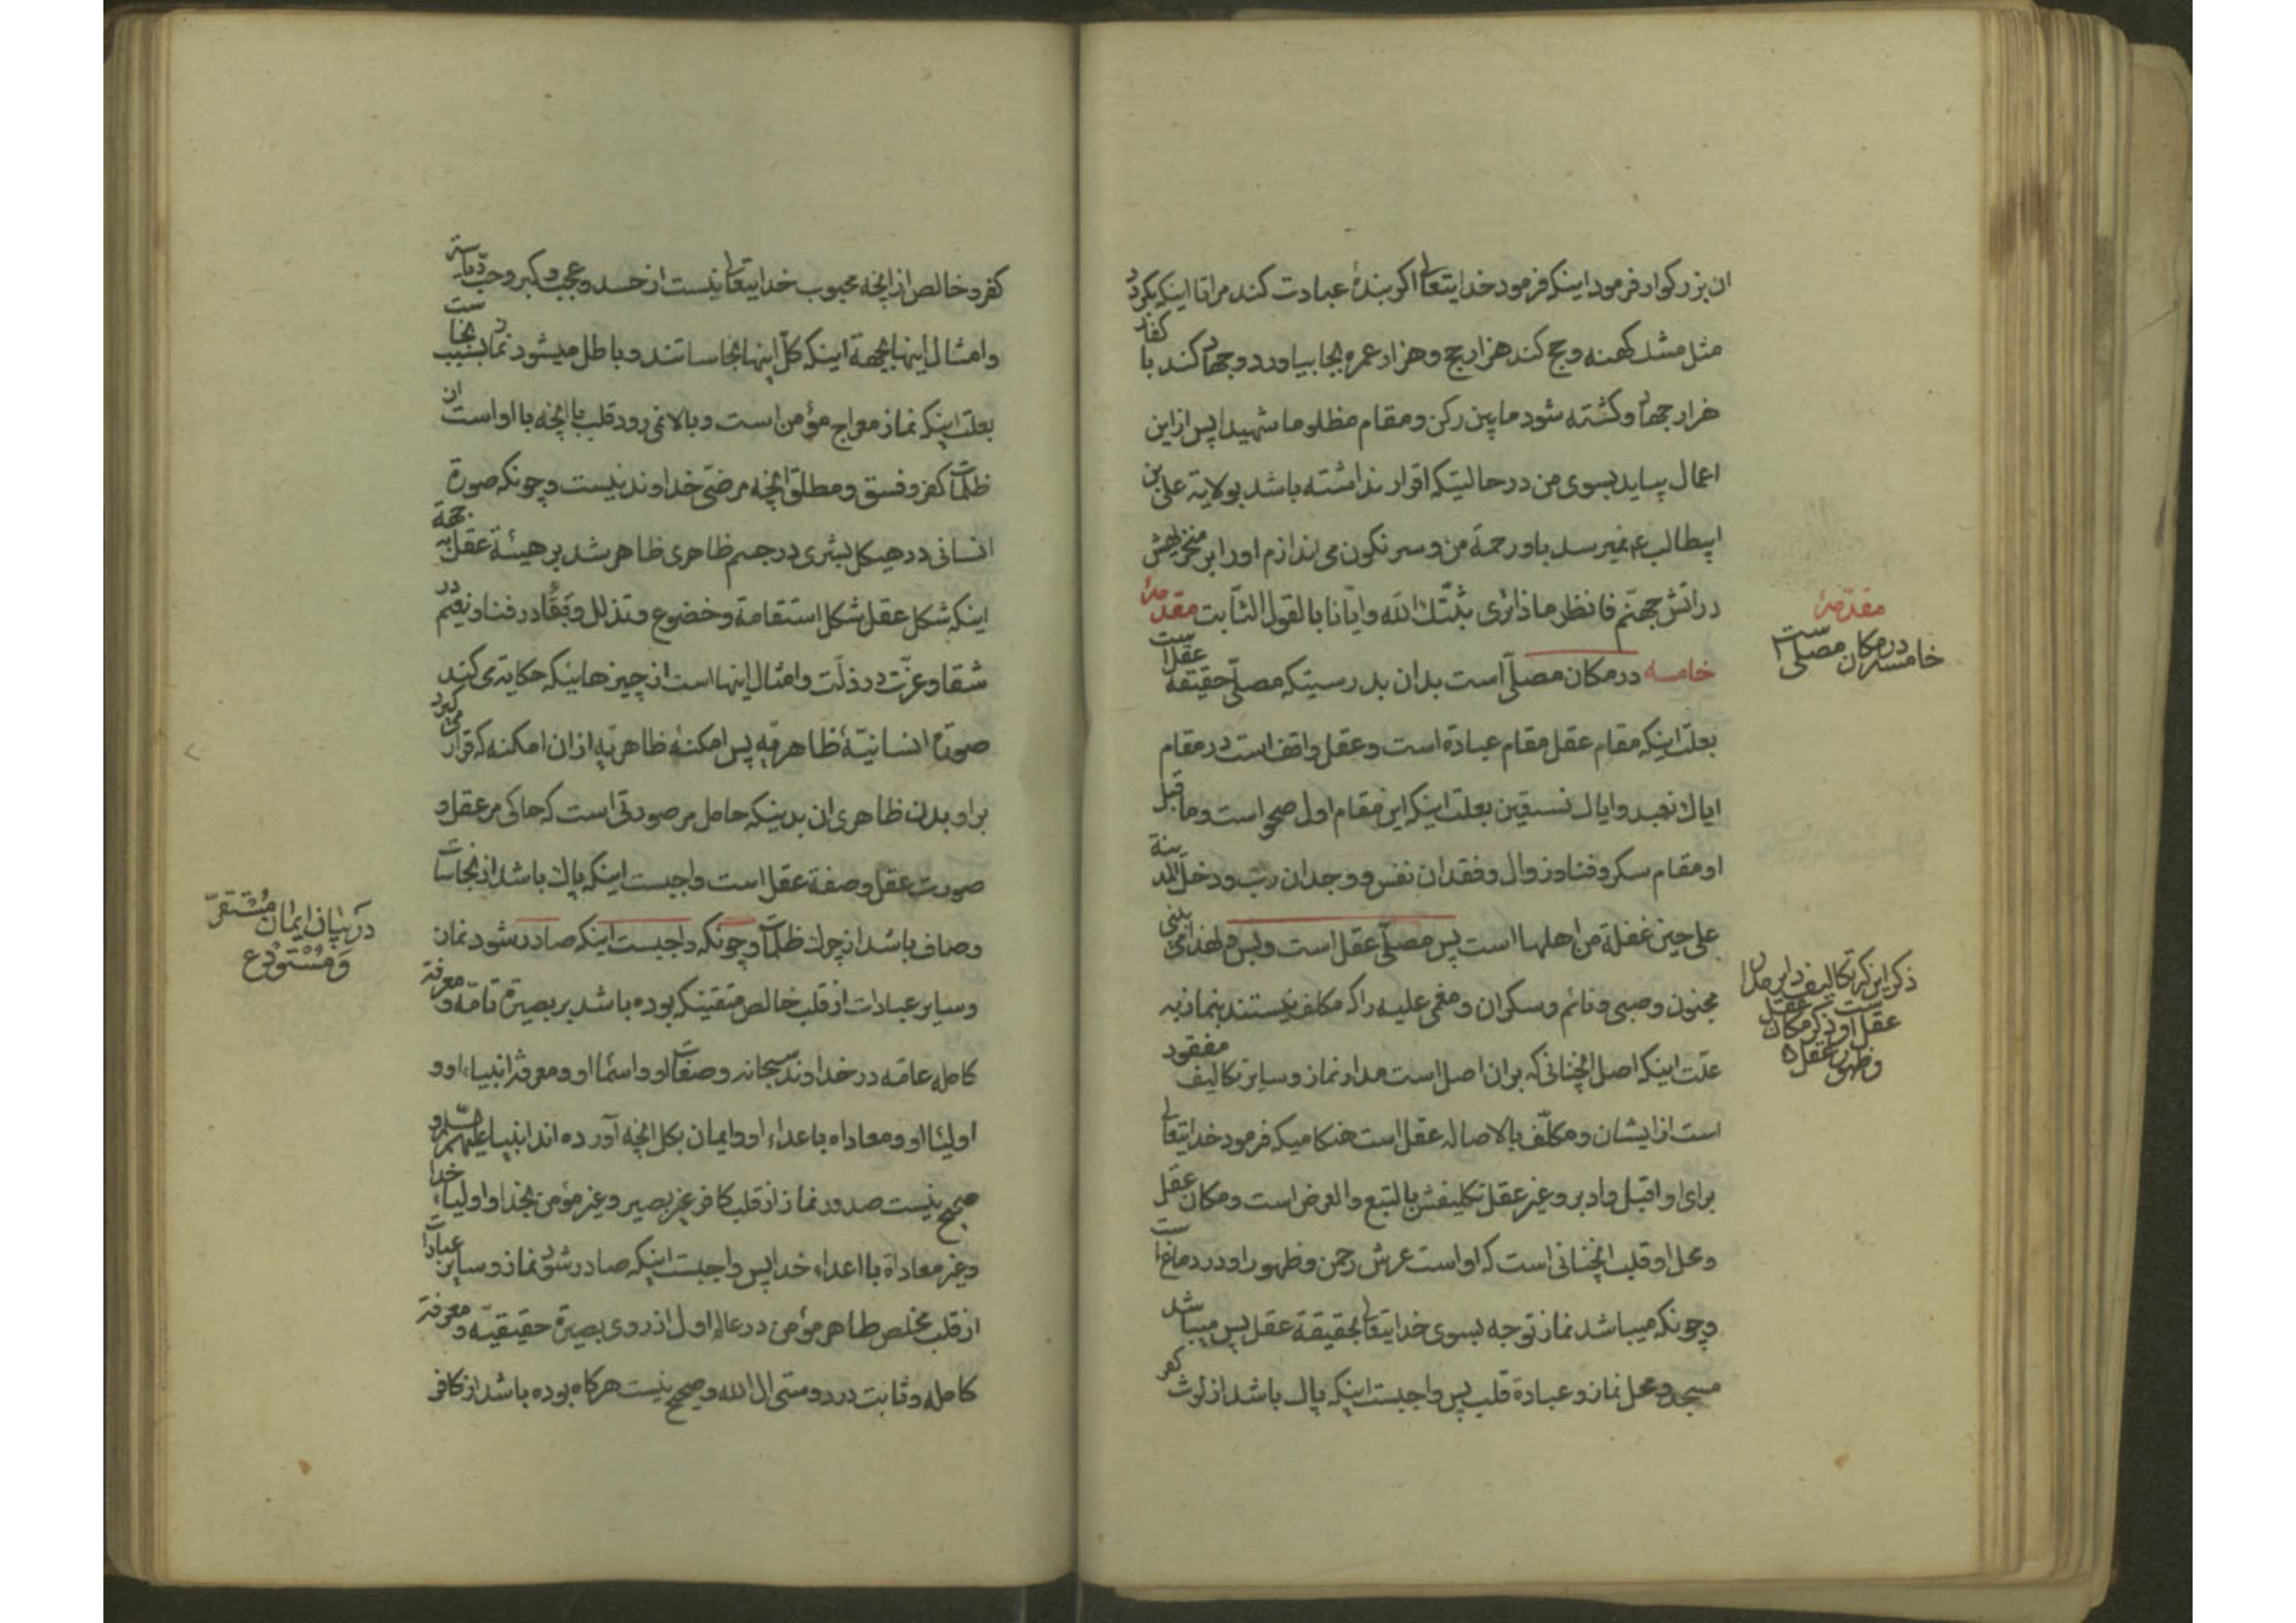 ان بزرکوار فرمود اینکه فرمود خدایتعالی اکر بندهٔ عبادت کند مرا تا اینکه بکردد
مثل مشك کهنه و حج کند هزار حج و هزار عمره بجا بیاورد و جهاد کند با کفار
هزار جهاد و کشته شود ما بین رکن و مقام مظلوما شهیدا پس از این
اعمال بیاید بسوی من در حالتیکه اقرار نداشته باشد بولایة علی بن
ابیطالب ع نمیرسد باو رحمة من و سرنکون می اندازم او را بر منخریهش
در اتش جهنم فانظر ماذا تری ثبتك الله و ایانا بالقول الثابت مقدمهٔ
خامسه در مکان مصلی است بدان بدرستیکه مصلی حقیقة عقل است
بعلت اینکه مقام عقل مقام عبادة است و عقل واقف است در مقام
ایاك نعبد و ایاك نستعین بعلت اینکه این مقام اول صحو است و ما قبل
او مقام سکر و فنا و زوال و فقدان نفس و وجدان رب و دخل المدینة
علی حین غفلة من اهلها است پس مصلی عقل است و بس و لهذا می بینی
مجنون و صبی و نائم و سکران و مغمی علیه را که مکلف نیستند بنماز به
علت اینکه اصل انچنانی که بران اصل است مدار نماز و سایر تکالیف مفقود
است از ایشان و مکلف بالاصاله عقل است هنکامیکه فرمود خدایتعالی
برای او اقبل و ادبر و غیر عقل تکلیفش بالتبع و العرض است و مکان عقل
و محل او قلب انچنانی است که او است عرش رحمن و ظهور او در دماغ است
و چونکه میباشد نماز توجه بسوی خدایتعالی بحقیقة عقل پس میباشد
مسجد و محل نماز و عبادة قلب پس واجبست اینکه پاك باشد از لوث کفر
مقدمهٔ
خامسه در مکان مصلی است
ذکر این که تکالیف دایر مدار
عقل است و ذکر مکان عقل
و ظهور عقل
کفر و خالص از انچه محبوب خدایتعالی نیست از حسد و عجب و کبر و حب ریاسة
و امثال اینها بجهة اینکه کل اینها نجاساتند و باطل میشود نماز بسبب نجاست
بعلت اینکه نماز معراج مؤمن است و بالا نمی رود قلب با انچه با او است از
ظلمات کفر و فسق و مطلق انچه مرضی خداوند نیست و چونکه صورة
انسانی در هیکل بشری در جسم ظاهری ظاهر شد بر هیئة عقل به جهة
اینکه شکل عقل شکل استقامة و خضوع و تذلل و بقا در فنا و نعیم در
شقا و عزت در ذلت و امثال اینها است از چیزهائیکه حکایة می کند
صورة انسانیهٔ ظاهریه پس امکنهٔ ظاهریه از ان امکنه که قرار می کیرد
بر او بدن ظاهری ان بدنیکه حامل مر صورتی است که حاکی مر عقل و
صورت عقل و صفة عقل است واجبست اینکه پاك باشد از نجاسات
و صاف باشد از چرك ظلمات و چونکه واجبست اینکه صادر شود نماز
و سایر عبادات از قلب خالص متقینکه بوده باشد بر بصیرة تامه و معرفة
کامله عامه در خداوند سبحانه و صفات او و اسماء او و معرفة انبیاء او و
اولیاء او و معاداه باعداء او و ایمان بکل انچه آورده اند انبیا علیهم السلم و
صحیح نیست صدور نماز از قلب کافر غیر بصیر و غیر مؤمن بخدا و اولیاء خدا
و غیر معاداة با اعداء خدا پس واجبست اینکه صادر شود نماز و سایر عبادات
از قلب مخلص طاهر مؤمن در عالم اول از روی بصیرة حقیقیه و معرفة
کامله و ثابت در دوستی ال الله و صحیح نیست هر کاه بوده باشد از کافر
در بیان ایمان مستقر
و مستودع